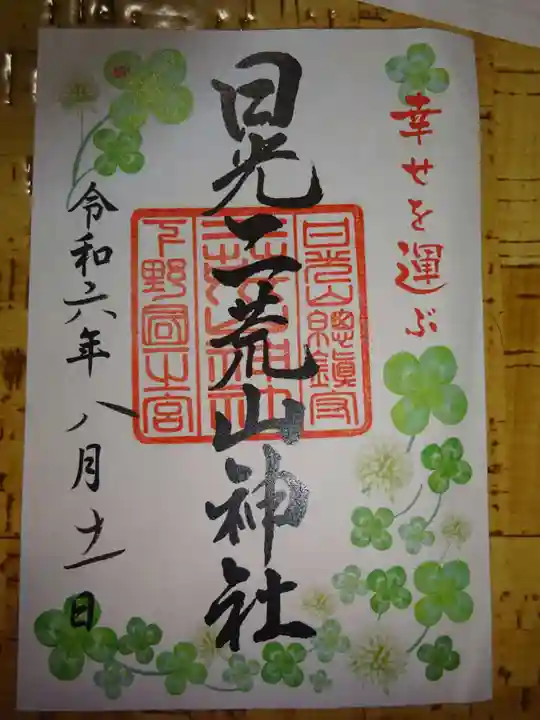 幸せを運ぶ
日光二荒山神社
日光山總鎮守
二荒山神社
下野國一之宮
令和六年八月十一日